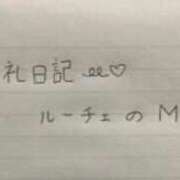 礼日記 ෆ♡
ルーチェ の M